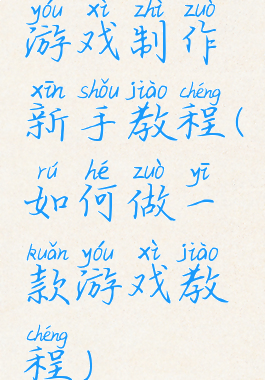 yóu xì zhì zuò
游戏制作
xīn shǒu jiào chéng
新手教程(
rú hé zuò yī
如何做一
kuǎn yóu xì jiào
款游戏教
chéng
程)